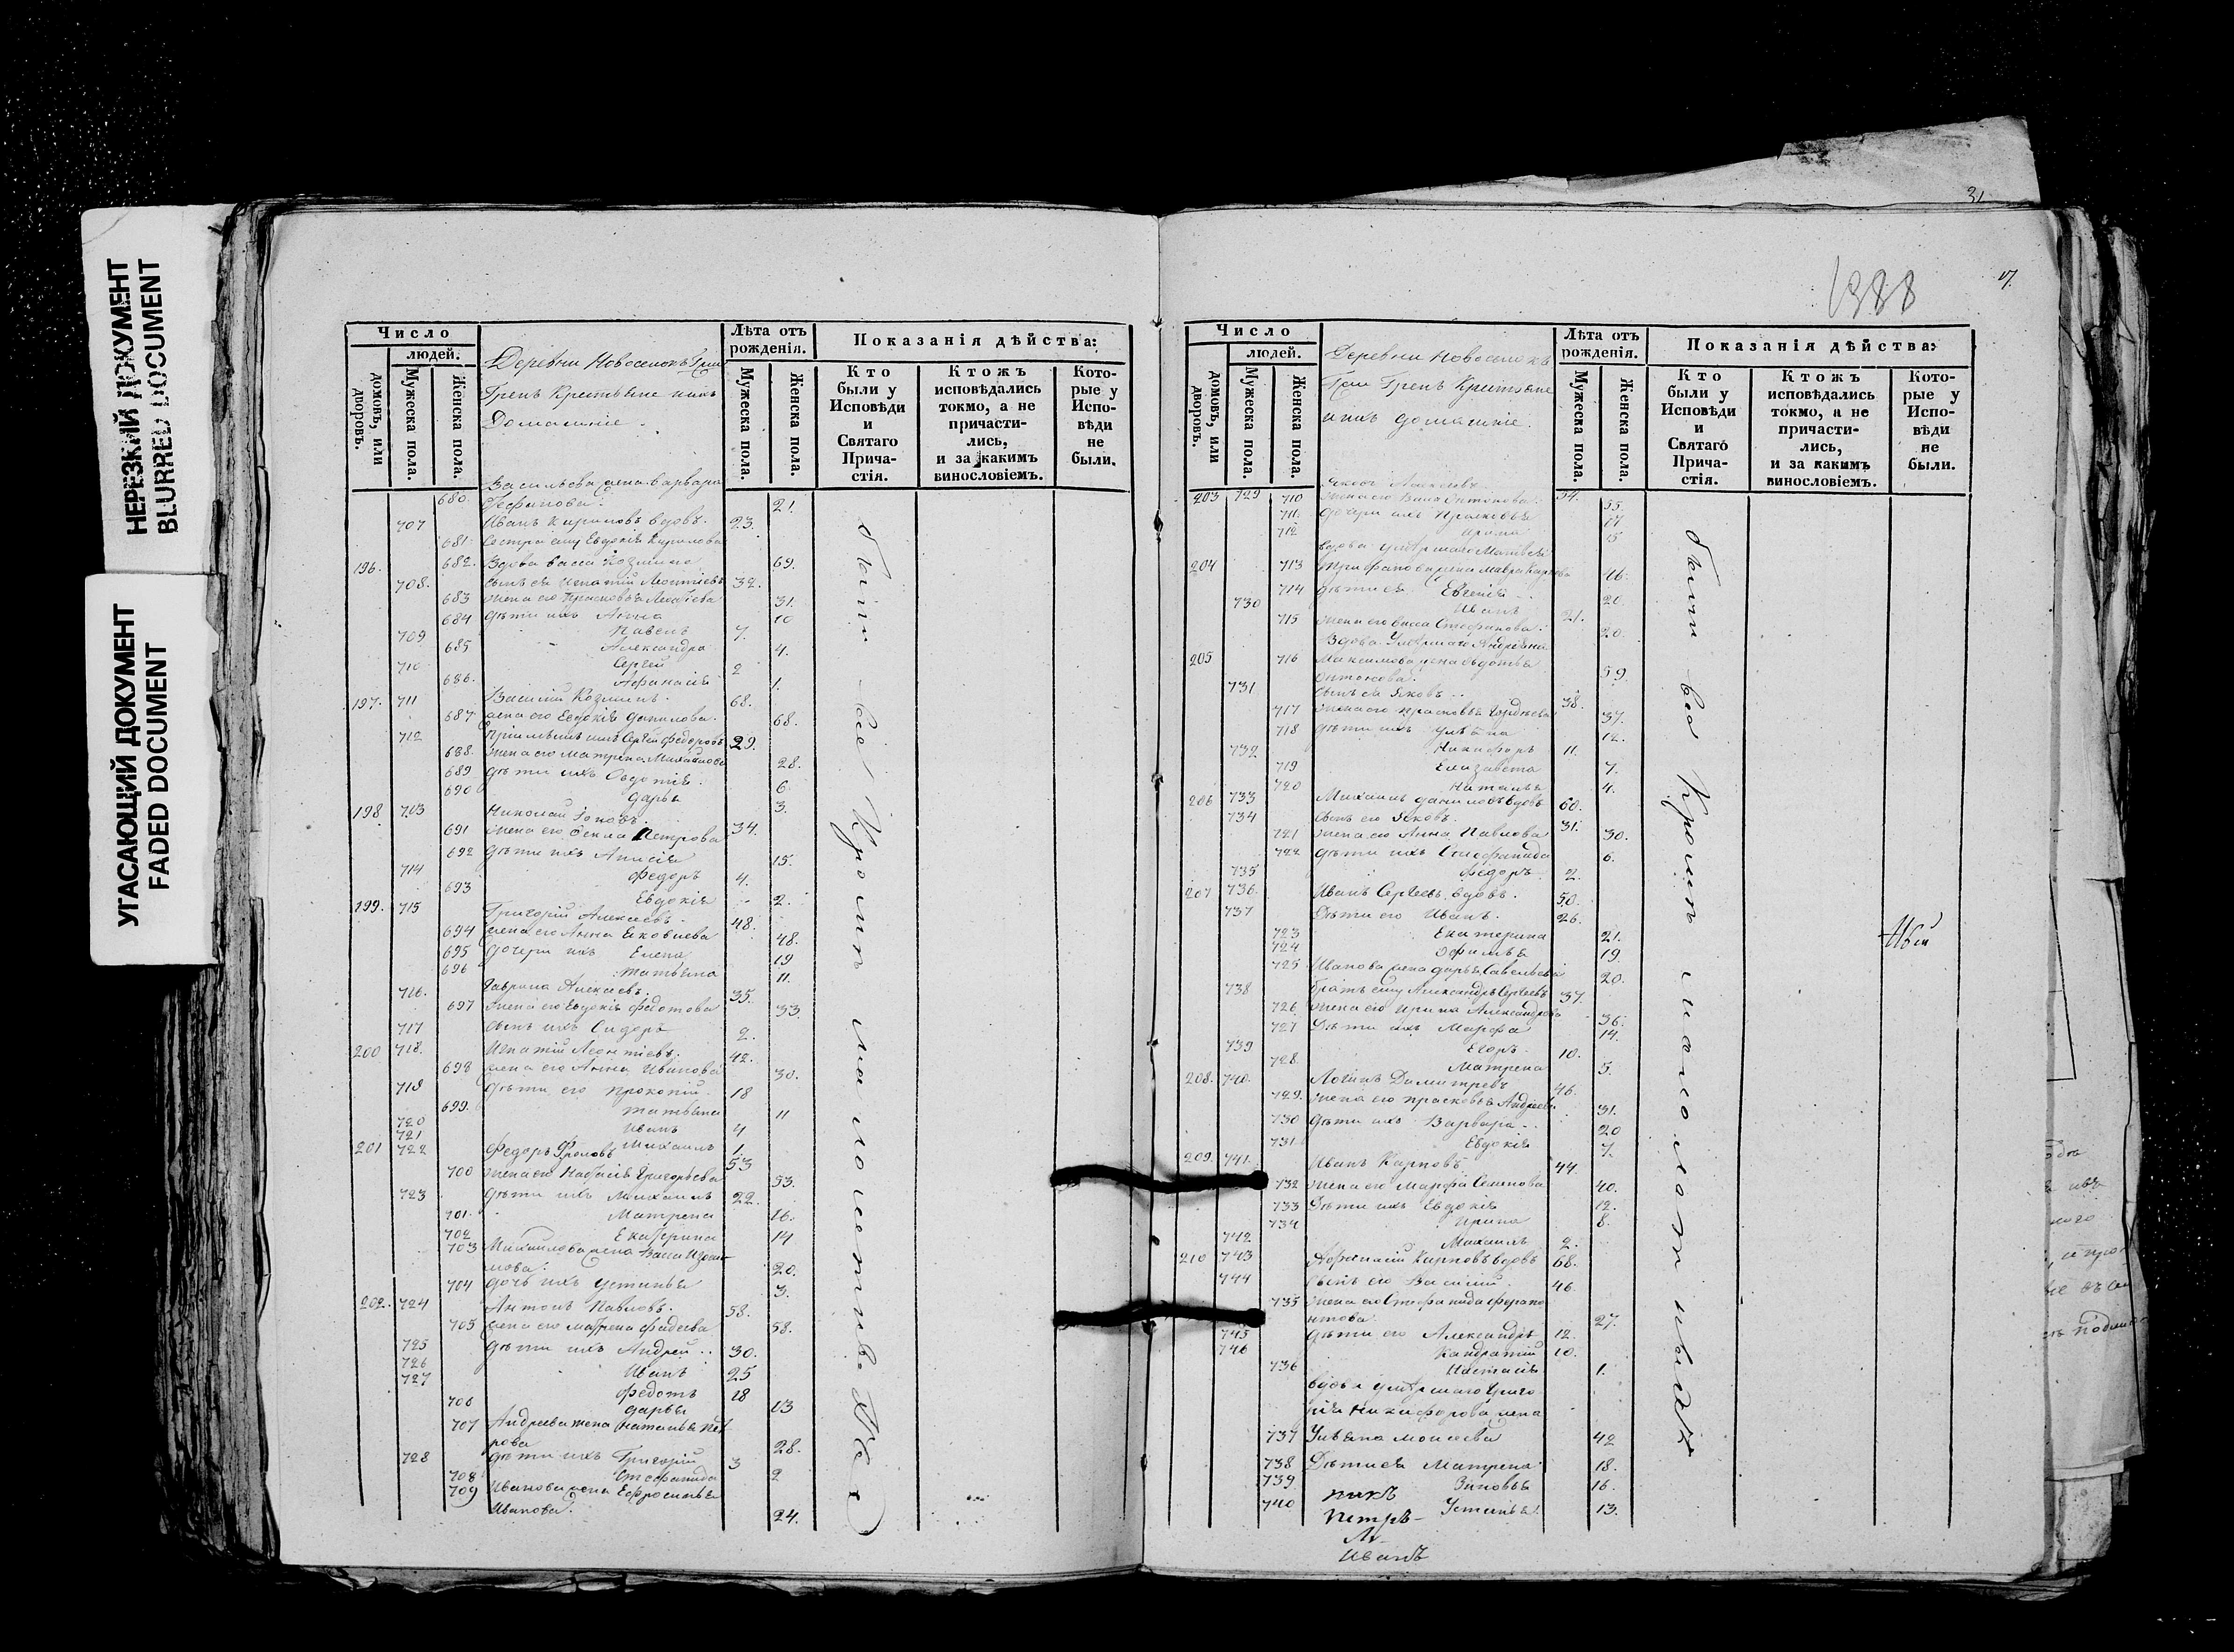 НЕРЕЗКИЙ ДОКУМЕНТ
BLURRED DOCUMENT
УГАСАЮЩИЙ ДОКУМЕНТ
FADED DOCUMENT
Число
людей.
домовъ, или дворовъ.
Мужеска пола.
Женска пола.
Деревни Новоселокъ
Домашніе.
Лѣта отъ рожденія.
Мужеска пола.
Женска пола.
Показанія дѣйства:
Кто были у Исповѣди и Святаго Причастія.
Ктожъ исповѣдались токмо, а не причастились, и за какимъ винословіемъ.
Которые у Исповѣди не были.
Васильева жена Варвара
680. 21.
707 Иванъ Кириловъ вдовъ. 23.
681. Сестра ему Евдокія Кирилова
196. 682. Вдова Васса Козмина 69.
708. сынъ ея Игнатій Леонтіевъ 32.
683 жена его Прасковья 31.
684 дѣти ихъ Анна 10
709 Павелъ 7.
685 Александра 4.
710 Сергей 2
686. Афанасія 1.
197. 711 Василій Козминъ. 68.
687 жена его Евдокія Данилова. 68.
712 Сергей Федоровъ 29.
688. жена его Матрена Михайлова 28.
689 дѣти ихъ Овдотія. 6.
690 Дарья 3.
198 703 Николай 34.
691 жена его Фекла Петрова
692 дѣти ихъ Анисія 15.
714 Федоръ 4.
693 Евдокія 2.
199. 715 Григорій Алексеевъ. 48.
694 жена его Анна Яковлева 48.
695 дочери ихъ Елена 19
696 Татьяна 11.
716. Гаврила Алексеевъ. 35.
697 жена его Евдокія Федотова 33
717 сынъ ихъ Сидоръ 2.
200 718. Игнатій Леонтіевъ. 42.
698 жена его Анна Иванова 30.
718 дѣти его Прокопій 18
699. Татьяна 11
720 Иванъ 4
721 Михаилъ 1.
201 722 Федоръ Фроловъ 53
700 жена его Настасія Григорьева 53.
723 дѣти ихъ Михаилъ 22.
701. Матрена 16.
702 Екатерина 14
703 Михайлова жена Васса 20.
704 дочь ихъ Устинья 3.
202. 724 Антонъ Павловъ. 58.
705 жена его Матрена Фадеева 58.
725 дѣти ихъ Андрей 30.
726 Иванъ 25
727 Федотъ 18
706 Дарья 13
707 Андреева жена Наталья Петрова 28.
728 дѣти ихъ Григорій 3
708 Стефанида 2
709 Иванова жена Ефросинья
Иванова. 24.
были все Кромѣ малолетнѣхъ
31
1388
17.
Число
людей.
домовъ, или дворовъ.
Мужеска пола.
Женска пола.
Деревни Новоселокъ
ихъ домашніе.
Лѣта отъ рожденія.
Мужеска пола.
Женска пола.
Показанія дѣйства:
Кто были у Исповѣди и Святаго Причастія.
Ктожъ исповѣдались токмо, а не причастились, и за какимъ винословіемъ.
Которые у Исповѣди не были.
203 729 Яковъ Алексеевъ 54.
710 жена его Васса Антонова. 55.
711. дочери ихъ Прасковья 17
712 Ирина 15
вдова умершаго Матвея
204 713 жена Мавра Карпова 46.
714 дѣти ея Евгенія 20.
730 Иванъ 21.
715 жена его Васса Стефанова. 20.
Вдова Умершаго Андреяна
205 716 Максимова жена Овдотья
Антонова. 59.
731 сынъ ея Яковъ 38.
717 жена его Прасковья Гордѣева 37.
718 дѣти ихъ Ульяна 12.
732 Никифоръ 11.
719 Елизавета 7.
720 Наталья 4.
206 733 Михаилъ Даниловъ вдовъ 60.
734 сынъ его Яковъ. 31.
721 жена его Анна Павлова 30.
722 дѣти ихъ Стефанида 6.
735 Федоръ 2.
207 736 Иванъ Сергеевъ вдовъ. 50.
737 Дѣти его Иванъ. 26.
723 Екатерина 21.
724 Офимья 19.
725 Иванова жена Дарья Савельева 20.
738 братъ ему Александръ Сергеевъ 37.
726 жена его Ирина Александрова 36.
727 Дѣти ихъ Марфа 14.
739 Егоръ 10.
728 Матрена 5.
208. 740. Логинъ Димитревъ 46.
729. жена его Прасковья Андреева 31.
730 дѣти ихъ Варвара 20
731 Евдокія 7.
209. 741. Иванъ Карповъ 44.
732 жена его Марфа Семенова 40.
733 Дѣти ихъ Евдокія 12.
734 Ирина 8.
742 Михаилъ 2.
210 743 Афанасій Карповъ вдовъ 68.
744 сынъ его Василій 46.
735 жена его Стефанида 27.
745 дѣти его Александръ 12.
746 Кандратій 10.
736 Настасія 1.
вдова умершаго Григорія Никифорова жена
737 Ульяна Моисеева 42
738 Дѣти ея Матрена 18.
739 Зиновья 16.
740 Устинья 13.
были все Кромѣ малолетнѣхъ
Петръ
Иванъ